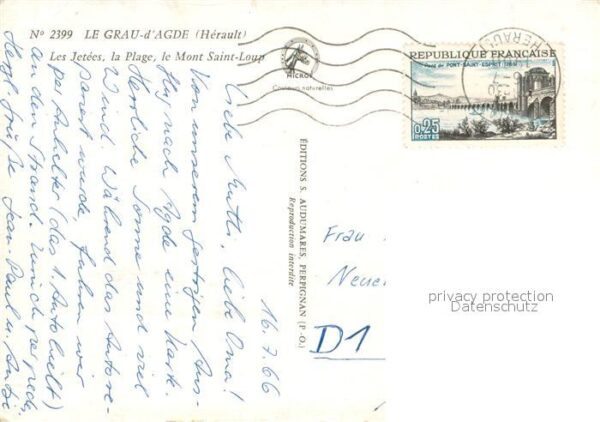 Nº 2399 LE GRAU-d'AGDE (Hérault)
Les Jetées, la Plage, le Mont Saint-Loup
MICRO
Couleurs naturelles
RÉPUBLIQUE FRANÇAISE
PONT-SAINT-ESPRIT
0,25
POSTES
HERAULT
ÉDITIONS S. AUDUMARES, PERPIGNAN (P.-O.)
Reproduction interdite
16.7.66
Liebe Mutti, liebe Oma!
Von unserem gestrigen Aus-
flug nach Agde eine Karte.
Herrliche Sonne und viel
Wind. Während das Auto re-
pariert wurde, fuhren wir
per Anhalter (das 1. Auto hielt)
an den Strand. Zurück per pedes,
Herzl. Grüße Jean-Paul u.
Frau
Neue
D1
privacy protection
Datenschutz